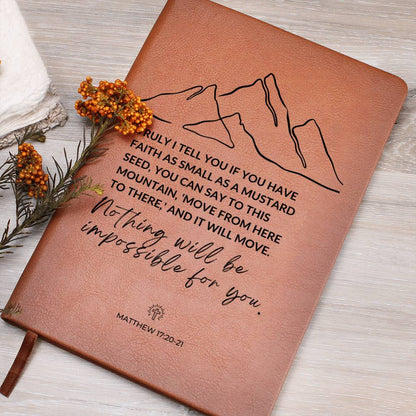 TRULY I TELL YOU IF YOU HAVE
FAITH AS SMALL AS A MUSTARD
SEED, YOU CAN SAY TO THIS
MOUNTAIN, 'MOVE FROM HERE
TO THERE,' AND IT WILL MOVE.
Nothing will be
impossible for you.
MATTHEW 17:20-21